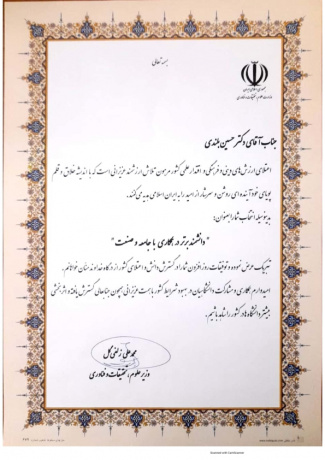 بسمه تعالی
جمهوری اسلامی ایران
وزارت علوم، تحقیقات و فناوری
جناب آقای دکتر حسین بلندی
اعتلای ارزش‌های دینی و فرهنگی و اقتدار علمی کشور مرهون تلاش ارزشمند عزیزانی است که با اندیشه خلاق و قلم
پویای خود آینده‌ای روشن و سرشار از امید را به ایران اسلامی هدیه می‌کنند.
بدینوسیله انتخاب شما را بعنوان:
"دانشمند برتر در همکاری با جامعه و صنعت"
تبریک عرض نموده و توفیقات روزافزون شما را در گسترش دانش و اعتلای کشور از درگاه خداوند منان خواهانم.
امیدوارم همکاری و مشارکت دانشگاهیان در بهبود شرایط کشور با همت عزیزانی همچون جنابعالی گسترش یافته و اثربخشی
بیشتر دانشگاه‌ها در کشور را شاهد باشیم.
محمد علی زلفی گل
وزیر علوم، تحقیقات و فناوری